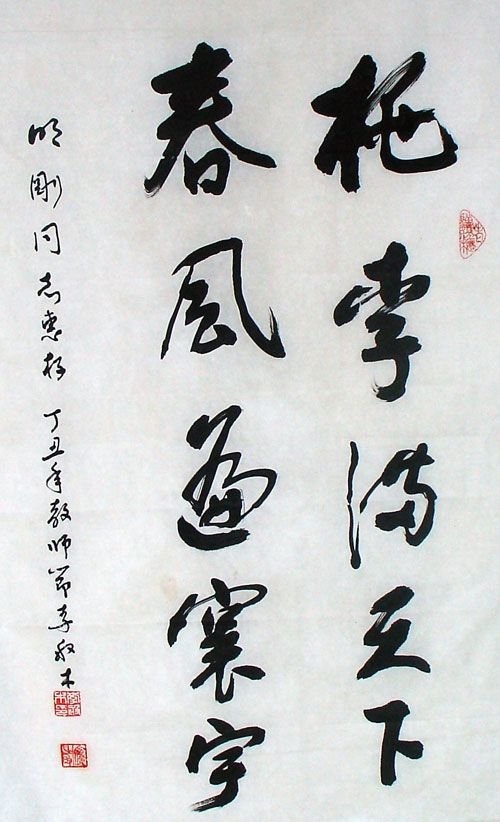 桃李满天下
春风遍寰宇
明刚同志惠存 丁丑年教师节李敬木